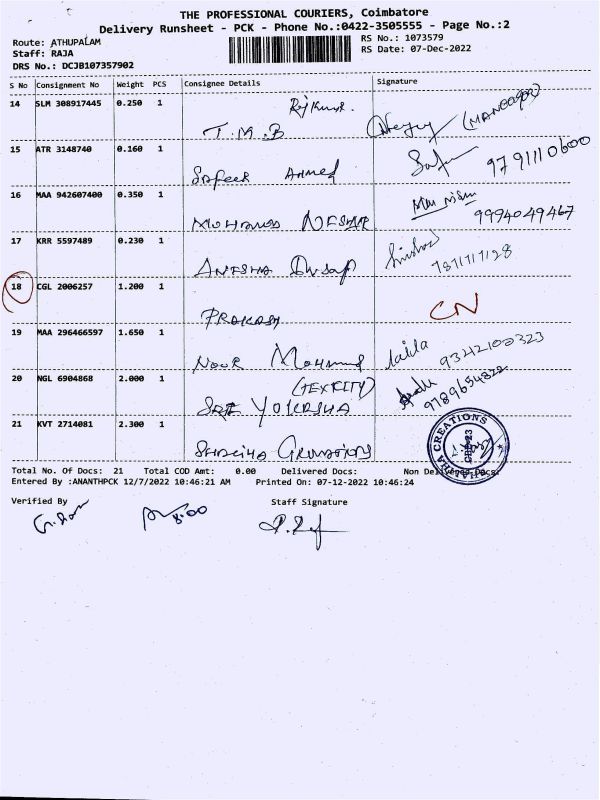 THE PROFESSIONAL COURIERS, Coimbatore
Delivery Runsheet - PCK - Phone No.:0422-3505555 - Page No.:2
Route: ATHUPALAM
RS No.: 1073579
Staff: RAJA
RS Date: 07-Dec-2022
DRS No.: DCJB107357902
S No Consignment No Weight PCS Consignee Details Signature
14 SLM 308917445 0.250 1 Rajkumar.
T.M.B (MANAGER)
15 ATR 3148740 0.160 1
Safeer Ahmed 9791110600
16 MAA 942607400 0.350 1
MOHAMED 9994049467
17 KRR 5597489 0.230 1
7811717128
18 CGL 2006257 1.200 1 CN
PRAKASH
19 MAA 296466597 1.650 1 lalila
NOOR MOHAMMED 9342100323
20 NGL 6904868 2.000 1 (TEXCITY)
SREE 9789654822
21 KVT 2714081 2.300 1
CREATIONS
Total No. Of Docs: 21 Total COD Amt: 0.00 Delivered Docs: Non Delivered Docs:
Entered By :ANANTHPCK 12/7/2022 10:46:21 AM Printed On: 07-12-2022 10:46:24
Verified By Staff Signature
8.00